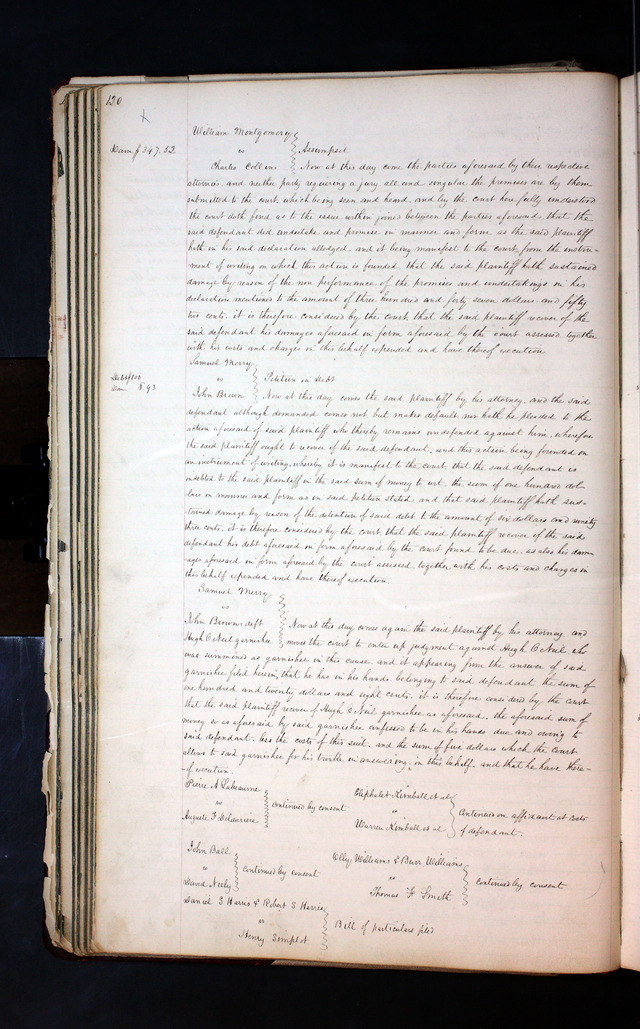 120
William Montgomery
vs Assumpsit
Dam $347.52
Charles Collins Now at this day come the parties aforesaid by their respective
attornies, and neither party requiring a jury all and singular the premises are by them
submitted to the court, which being seen and heard, and by the court here fully understood
the court doth find as to the issue within joined between the parties aforesaid that the
said defendant did undertake and promise in manner and form as the said plaintiff
hath in his said declaration alledged and it being manifest to the court from the instru-
ment of writing on which this action is founded, that the said plaintiff hath sustained
damage by reason of the non performance of the promises and undertakings in his
declaration mentioned to the amount of three hundred and forty seven dollars and fifty
two cents. it is therefore considered by the court that the said plaintiff recover of the
said defendant his damages aforesaid in form aforesaid by the court assessed together
with his costs and charges in this behalf expended and have thereof execution.
Samuel Merry
vs Petition in Debt
Debt $100
Dam $6.93
John Brown Now at this day comes the said plaintiff by his attorney, and the said
defendant although demanded comes not, but makes default, nor hath he pleaded to the
action aforesaid of said plaintiff who thereby remains undefended against him, wherefore
the said plaintiff ought to recover of the said defendant, and this action being founded on
an instrument of writing, whereby it is manifest to the court that the said defendant is
indebted to the said plaintiff in the said sum of money to wit. the sum of one hundred dol-
lars in manner and form as in said petition stated, and that said plaintiff hath sus-
tained damage by reason of the detention of said debt to the amount of six dollars and ninety
three cents. it is therefore considered by the court that the said plaintiff recover of the said
defendant his debt aforesaid in form aforesaid by the court found to be due, as also his dam-
ages aforesaid in form aforesaid by the court assessed together with his costs and charges in
this behalf expended and have thereof execution.
Samuel Merry
vs
John Brown deft Now at this day comes again the said plaintiff by his attorney and
Hugh O Neil garnishee moves the court to enter up judgment against Hugh O Neil who
was summoned as garnishee in this cause and it appearing from the answer of said
garnishee filed herein, that he has in his hands belonging to said defendant the sum of
one hundred and twenty dollars and eight cents. it is therefore considered by the court
that the said plaintiff recover of Hugh O Neil garnishee as aforesaid, the aforesaid sum of
money so as aforesaid by said garnishee confessed to be in his hands due and owing to
said defendant, less the costs of this suit, and the sum of five dollars which the court
allows to said garnishee for his trouble in answering in this behalf, and that he have there-
of execution.
Pierre A Labeaume
vs continued by consent
Auguste F Delauriere
Eliphalet Kimball et al
vs Continued on affidavit at costs
Warren Kimball et al of defendant.
John Ball
vs continued by consent
David Neely
Willy Williams & Burr Williams
vs continued by consent
Thomas F Smith
Daniel S Harris & Robert S Harris
vs Bill of particulars filed
Henry Simplot